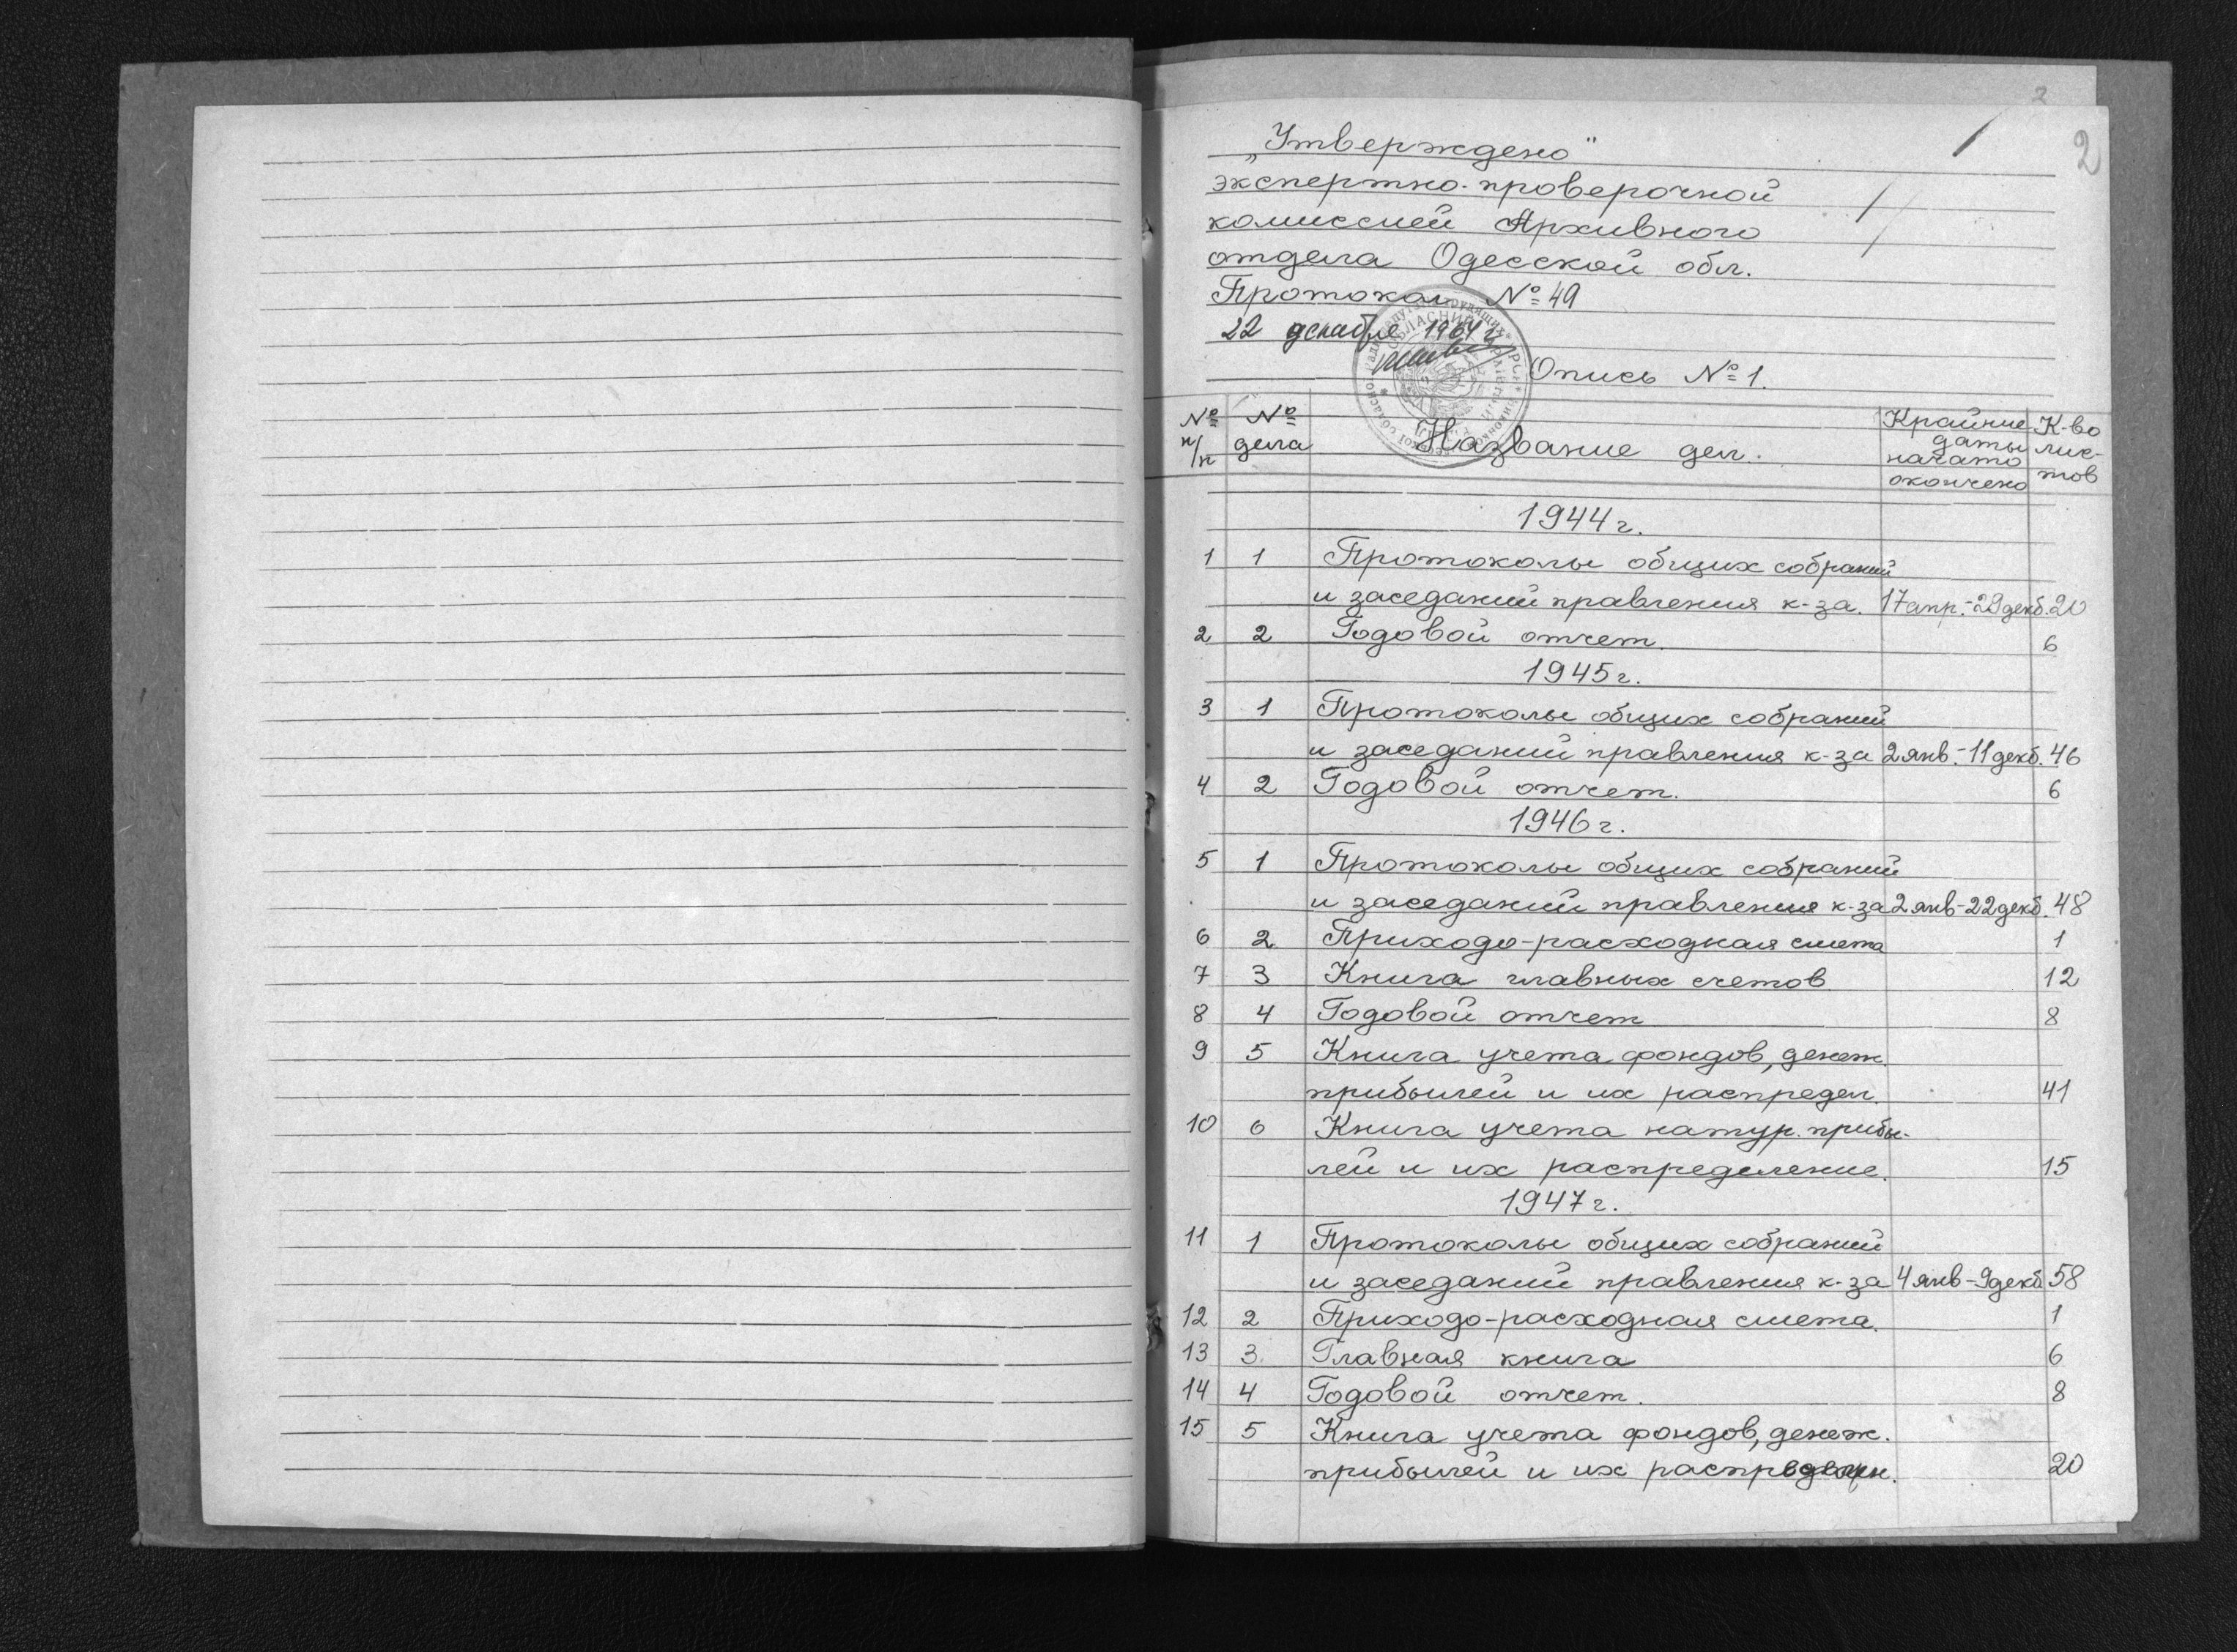 2
2
„Утверждено"
экспертно-проверочной
комиссией Архивного
отдела Одесской обл.
Протокол № 49
22 декабря 1964 г.
Опись № 1.
№ п/п № дела Название дел. Крайние даты начато окончено К-во лис-тов
1944 г.
1 1 Протоколы общих собраний
и заседаний правления к-за. 17 апр.-29 дек. 20
2 2 Годовой отчет. 6
1945 г.
3 1 Протоколы общих собраний
и заседаний правления к-за 2 янв.-11 декб. 46
4 2 Годовой отчет. 6
1946 г.
5 1 Протоколы общих собраний
и заседаний правления к-за 2 янв-22 декб. 48
6 2 Приходо-расходная смета 1
7 3 Книга главных счетов 12
8 4 Годовой отчет 8
9 5 Книга учета фондов, денеж.
прибылей и их распредел. 41
10 6 Книга учета натур. прибы-
лей и их распределение. 15
1947 г.
11 1 Протоколы общих собраний
и заседаний правления к-за 4 янв-9 декб 58
12 2 Приходо-расходная смета. 1
13 3. Главная книга 6
14 4 Годовой отчет. 8
15 5 Книга учета фондов, денеж.
прибылей и их 20